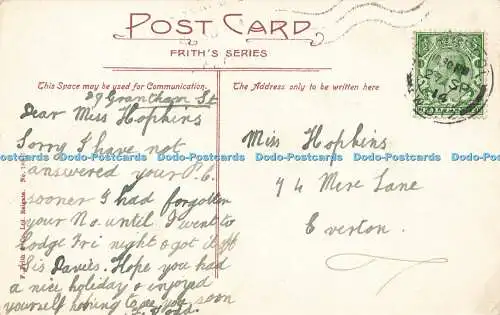 POST CARD
FRITH'S SERIES
This Space may be used for Communication.
The Address only to be written here
29 Grantham St
Dear Miss Hopkins
Sorry I have not
answered your P.C.
sooner I had forgotten
your No. until I went to
Lodge Fri night & got it off
Sis Davies. Hope you had
a nice holiday & enjoyed
yourself hoping to see you soon
Miss Hopkins
74 Mere Lane
Everton.
F. Frith & Co. Ltd. Reigate. No.
Dodo-Postcards Dodo-Postcards Dodo-Postcards Dodo-Postcards Dodo-Postcards Dodo-Postcards